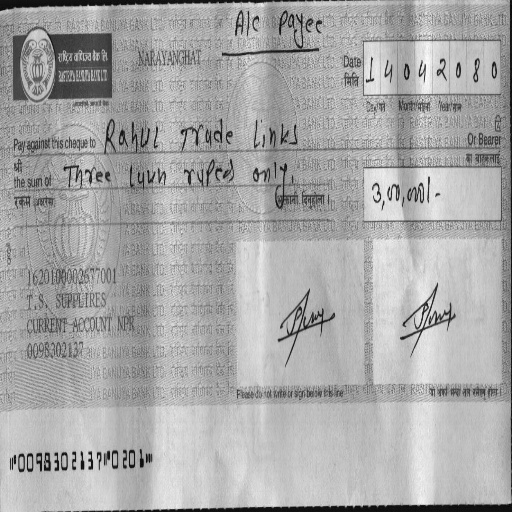 A/c Payee
राष्ट्रिय वाणिज्य बैंक लि.
RASTRIYA BANIJYA BANK LTD.
NARAYANGHAT
Date
मिति
1 4 0 4 2 0 8 0
Day/गते Month/महिना Year/साल
Pay against this cheque to Rahul Trade Links
Or Bearer
श्री
वा वाहकलाई
the sum of Three lakh rupees only.
रकम अक्षरमा
3,00,000/-
1620100002677001
T.S. SUPPLIRES
CURRENT ACCOUNT NPR
0098302137
Please do not write or sign below this line
"0098302137"0201"